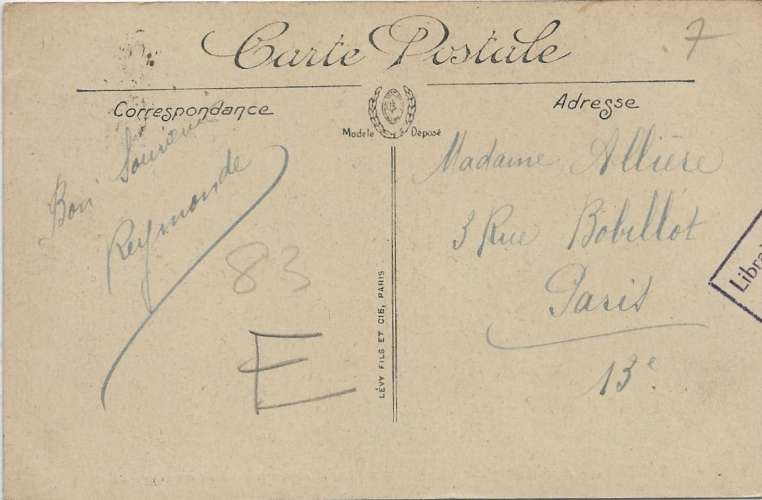 Carte Postale
7
Correspondance
Adresse
Modèle Déposé
Bon Souvenir
Reymonde
83
E
LÉVY FILS ET CIE, PARIS
Madame Allière
3 Rue Bobillot
Paris
13e
Librai